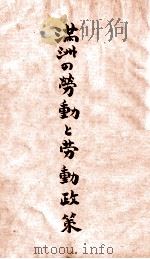 満洲の勞動と劳動政策
mtoou.info